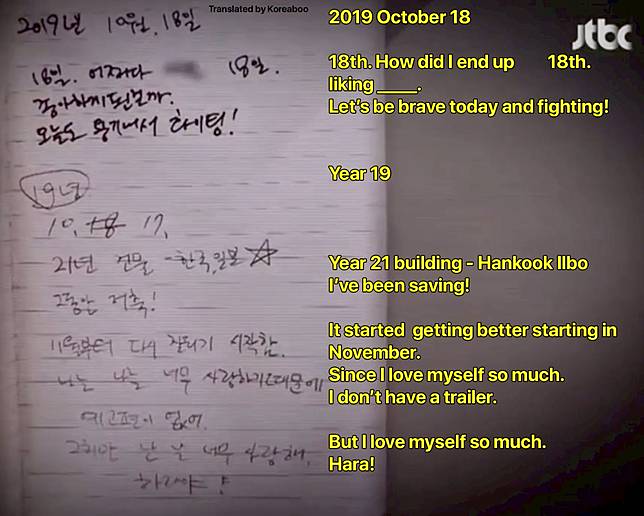 Translated by Koreaboo
jtbc
2019년 10월. 18일
2019 October 18
18일. 어쩌다 18일.
좋아하게된걸까.
오늘도 용기내서 화이팅!
18th. How did I end up 18th.
liking ____.
Let's be brave today and fighting!
19년
Year 19
10. 18 17.
21년 건물 - 한국일보 ☆
그동안 저축!
Year 21 building - Hankook Ilbo
I've been saving!
11월부터 다시 잘되기 시작함.
나는 나를 너무 사랑하기때문에
예고편이 없어.
It started getting better starting in
November.
Since I love myself so much.
I don't have a trailer.
그치만 난 날 너무 사랑해.
하라야!
But I love myself so much.
Hara!